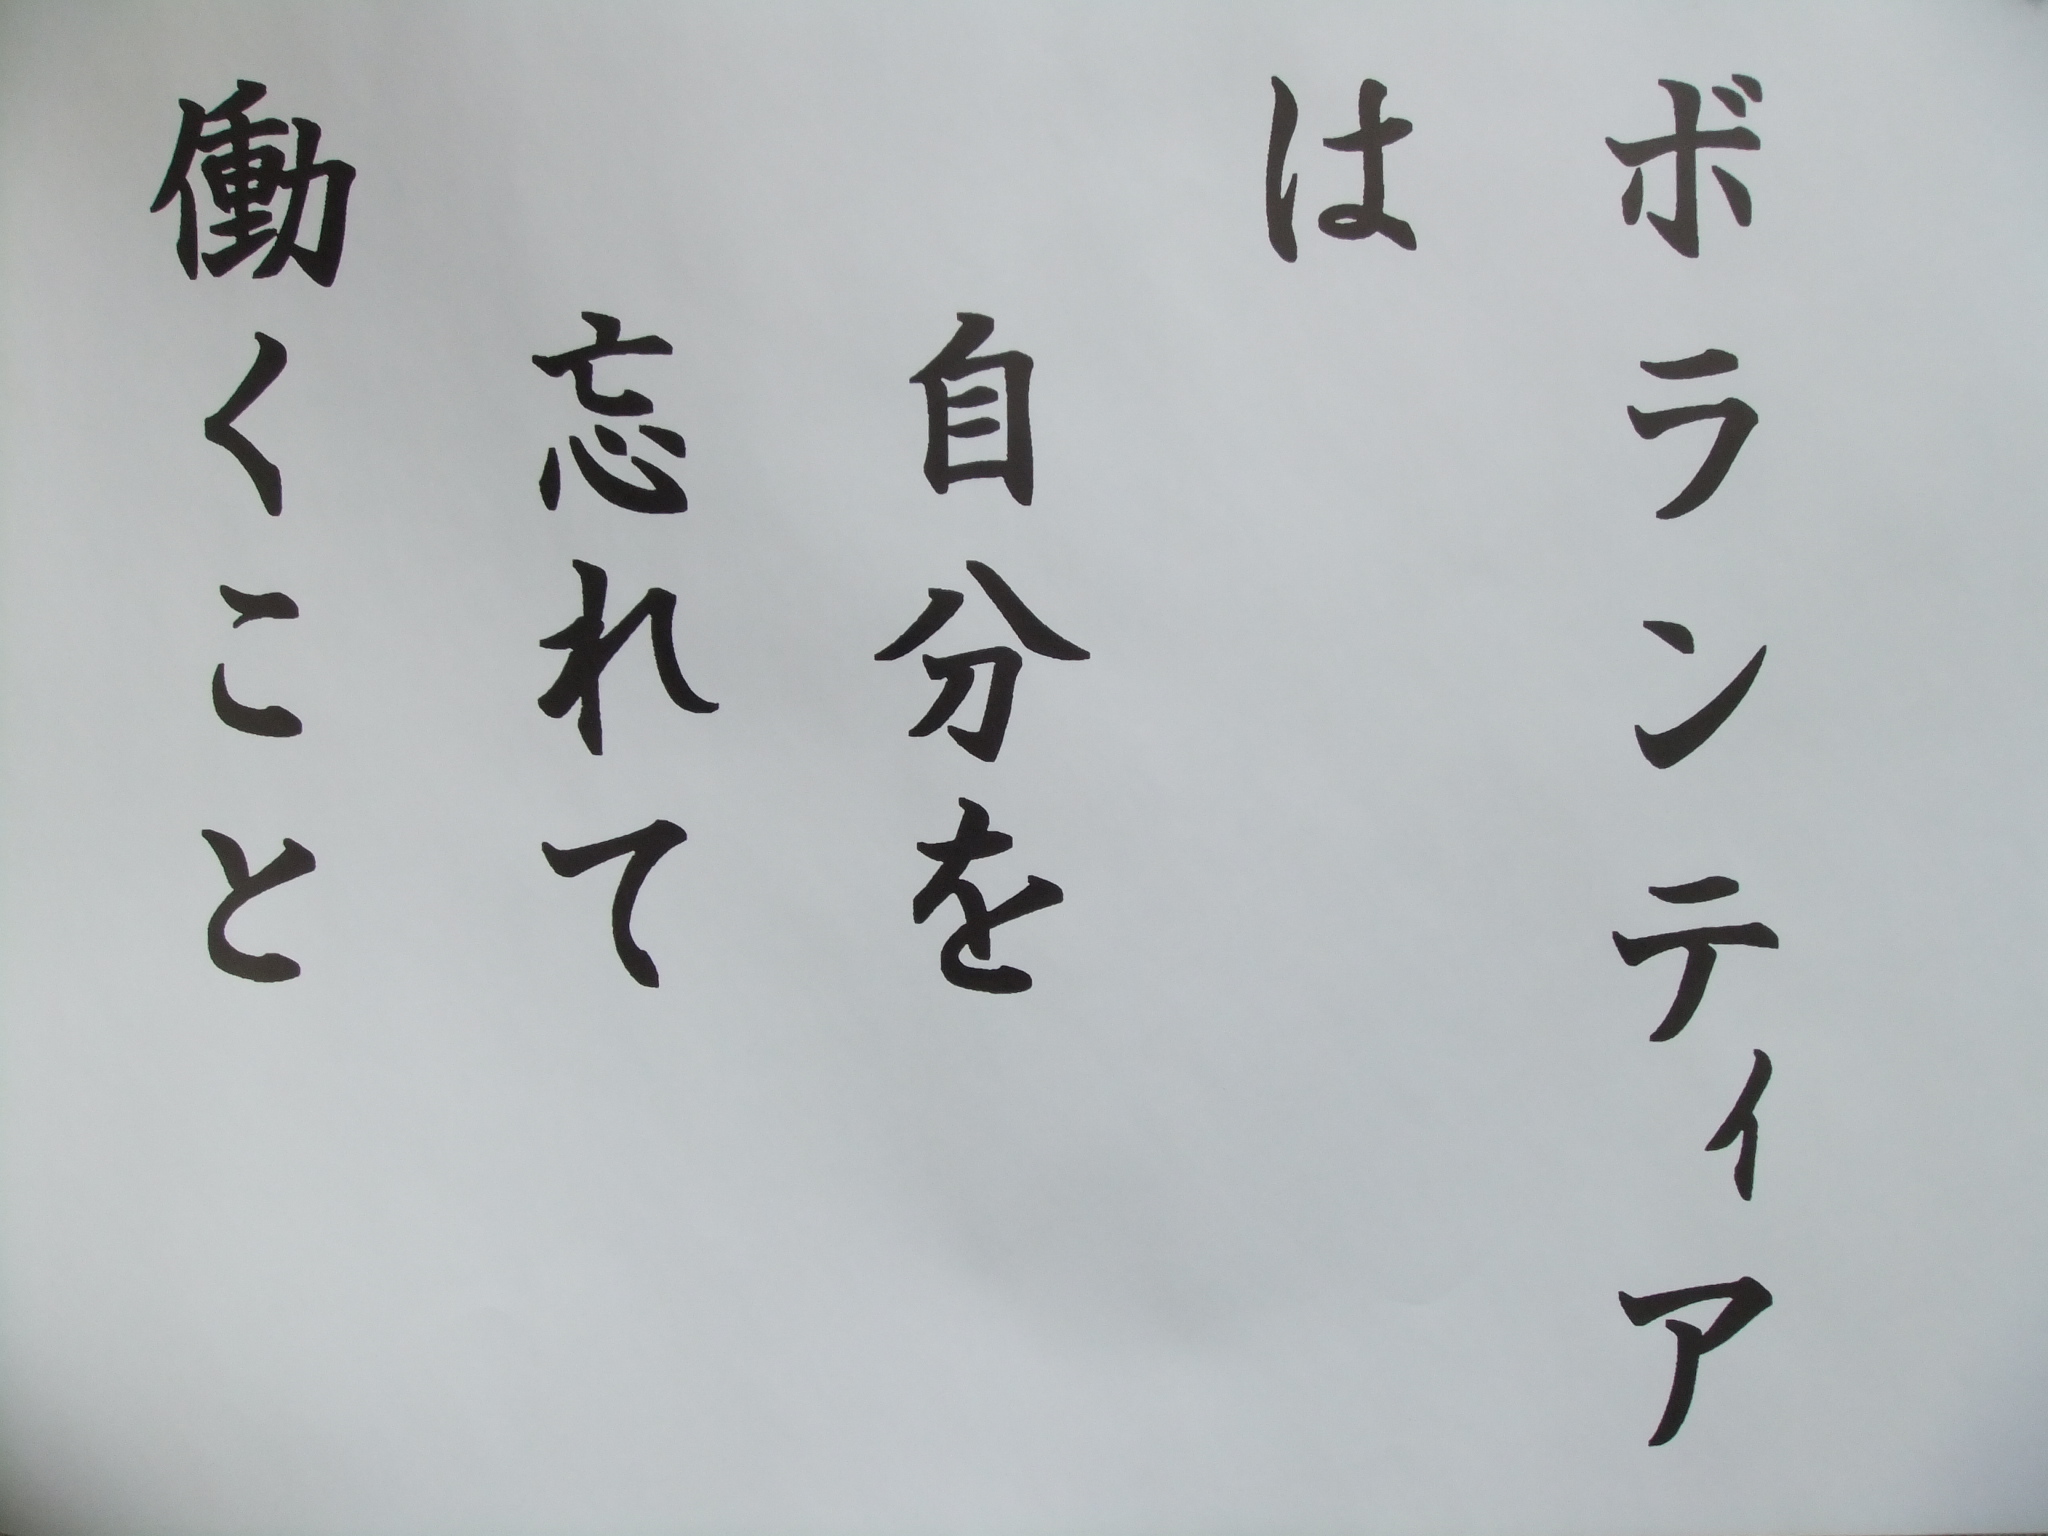 ボランティア
は
自分を
忘れて
働くこと